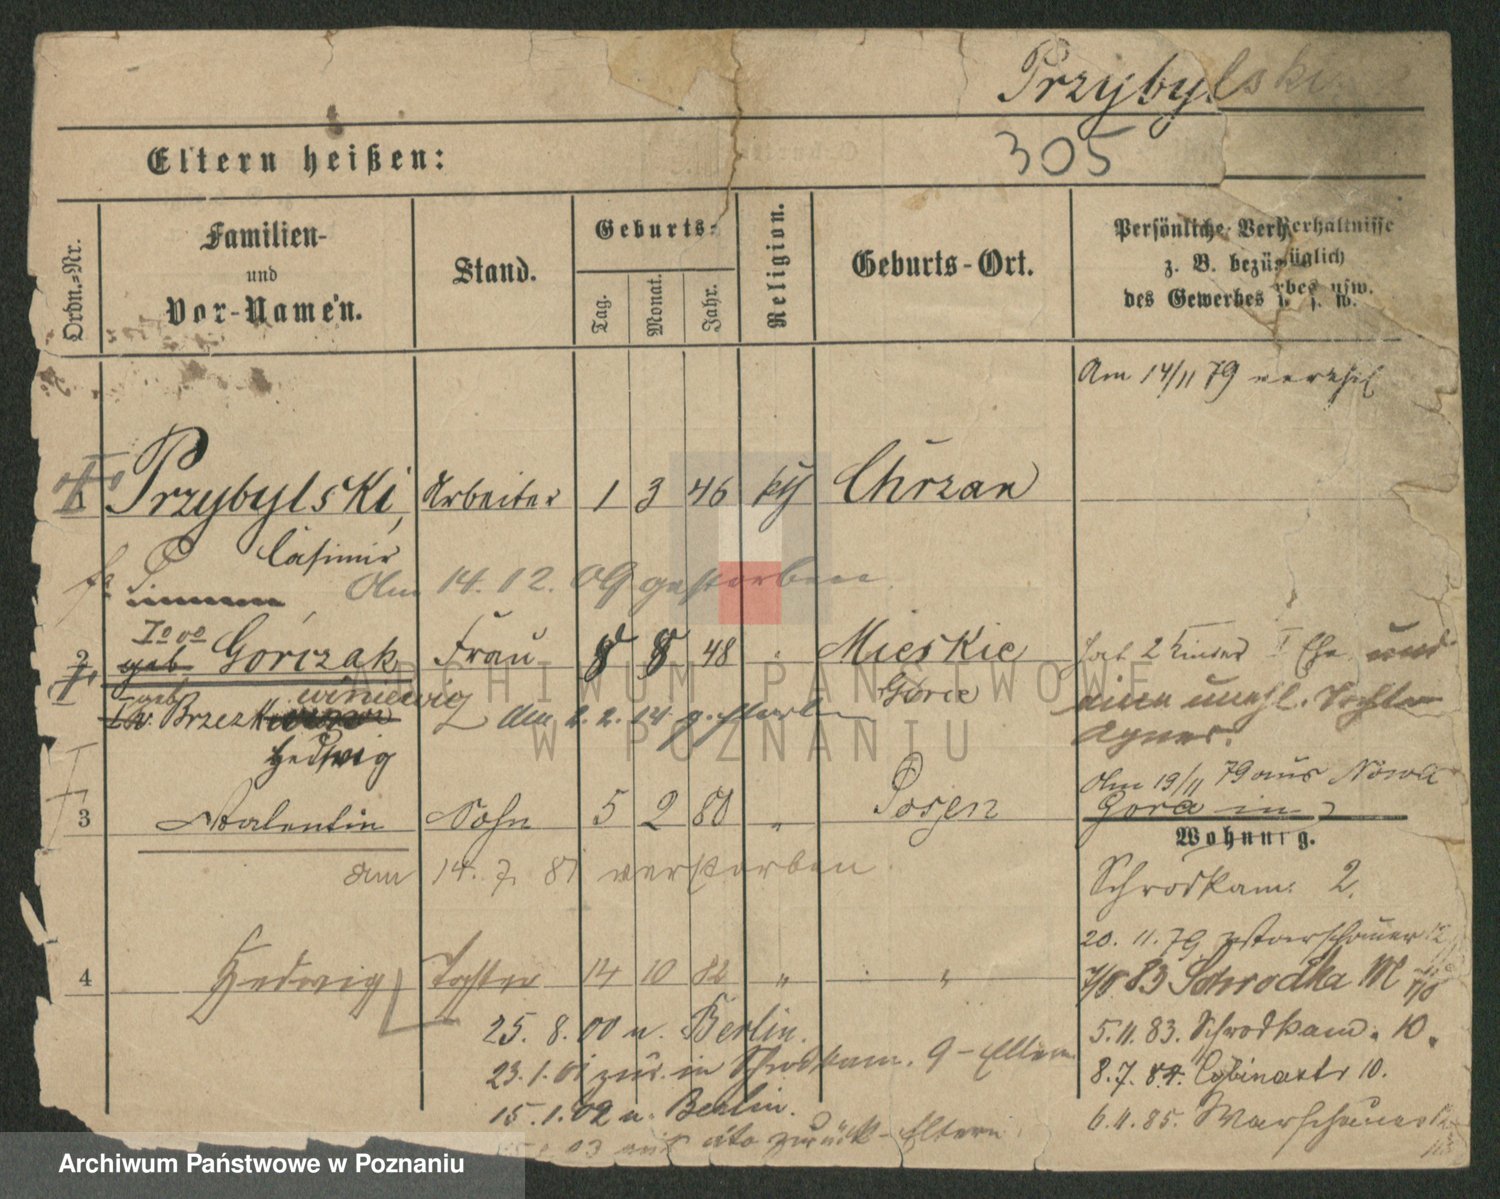 Przybylski
305
Eltern heißen:
Ordn.-Nr.
Familien-
und
Vor-Namen.
Stand.
Geburts-
Tag.
Monat.
Jahr.
Religion.
Geburts-Ort.
Persönliche Verhältnisse
z. B. bezüglich
des Gewerbes u. s. w.
Am 14/11 79
1 Przybylski, Arbeiter 1 3 46 Chrzan
Casimir
Am 14.12.09 gestorben
2 geb Gorczak Frau 8 8 48 " Mieskie
Górce
hat 2 Kinder I Ehe und
eine unehl. Tochter
Agnes.
geb. Brzez
am 2.2.14 gestorben
Hedwig
Am 19/11 79 aus Nowa
Gora in
3 Valentin Sohn 5 2 80 " Posen
Wohnung.
am 14.7.81 verstorben
Schrodkam. 2.
20.11.79
4 Hedwig Tochter 14 10 82 " "
83 Schrodka M
25.8.00 n. Berlin.
5.11.83. Schrodkam. 10.
23.1.01 zur. in Schrodkam. 9 - Eltern
8.7.84. Cybinastr 10.
15.1.02 n. Berlin.
6.11.85.
03 zurück - Eltern
ARCHIWUM PAŃSTWOWE
W POZNANIU
Archiwum Państwowe w Poznaniu